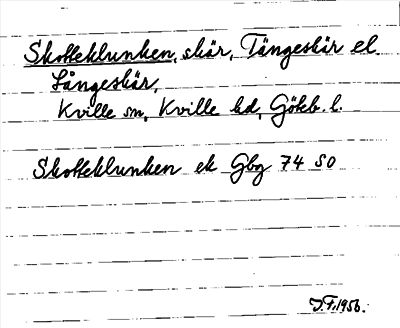 Skotteklunken, skär, Tångeskär el.
Långeskär,
Kville sn, Kville hd, Göteb. l.
Skotteklunken ek Gbg 74 SO
J.F. 1956.